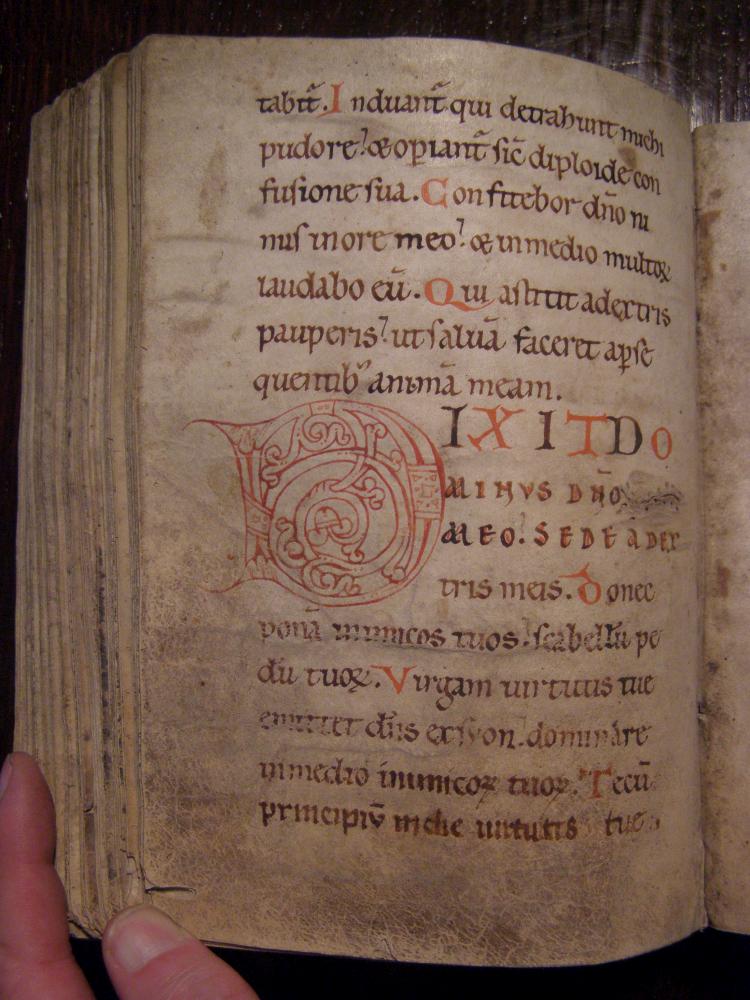 tabit̄. Induant̄ qui detrahunt michi
pudore? & opiant̄ sic̄ diploide con
fusione sua. Confitebor dño ni
mis in ore meo? & in medio multoꝝ
laudabo eū. Qui astitit adextris
pauperis? ut saluā faceret apse
quentib᾽ animā meam.
DIXIT DO
MINUS DÑO
MEO. SEDE A DEX
tris meis. Donec
ponā inimicos tuos. scabellū pe
dū tuoꝝ. Virgam uirtutis tue
emittet dñs ex syon. dominare
in medio inimicoꝝ tuoꝝ. Tecū
principiū in die uirtutis tue